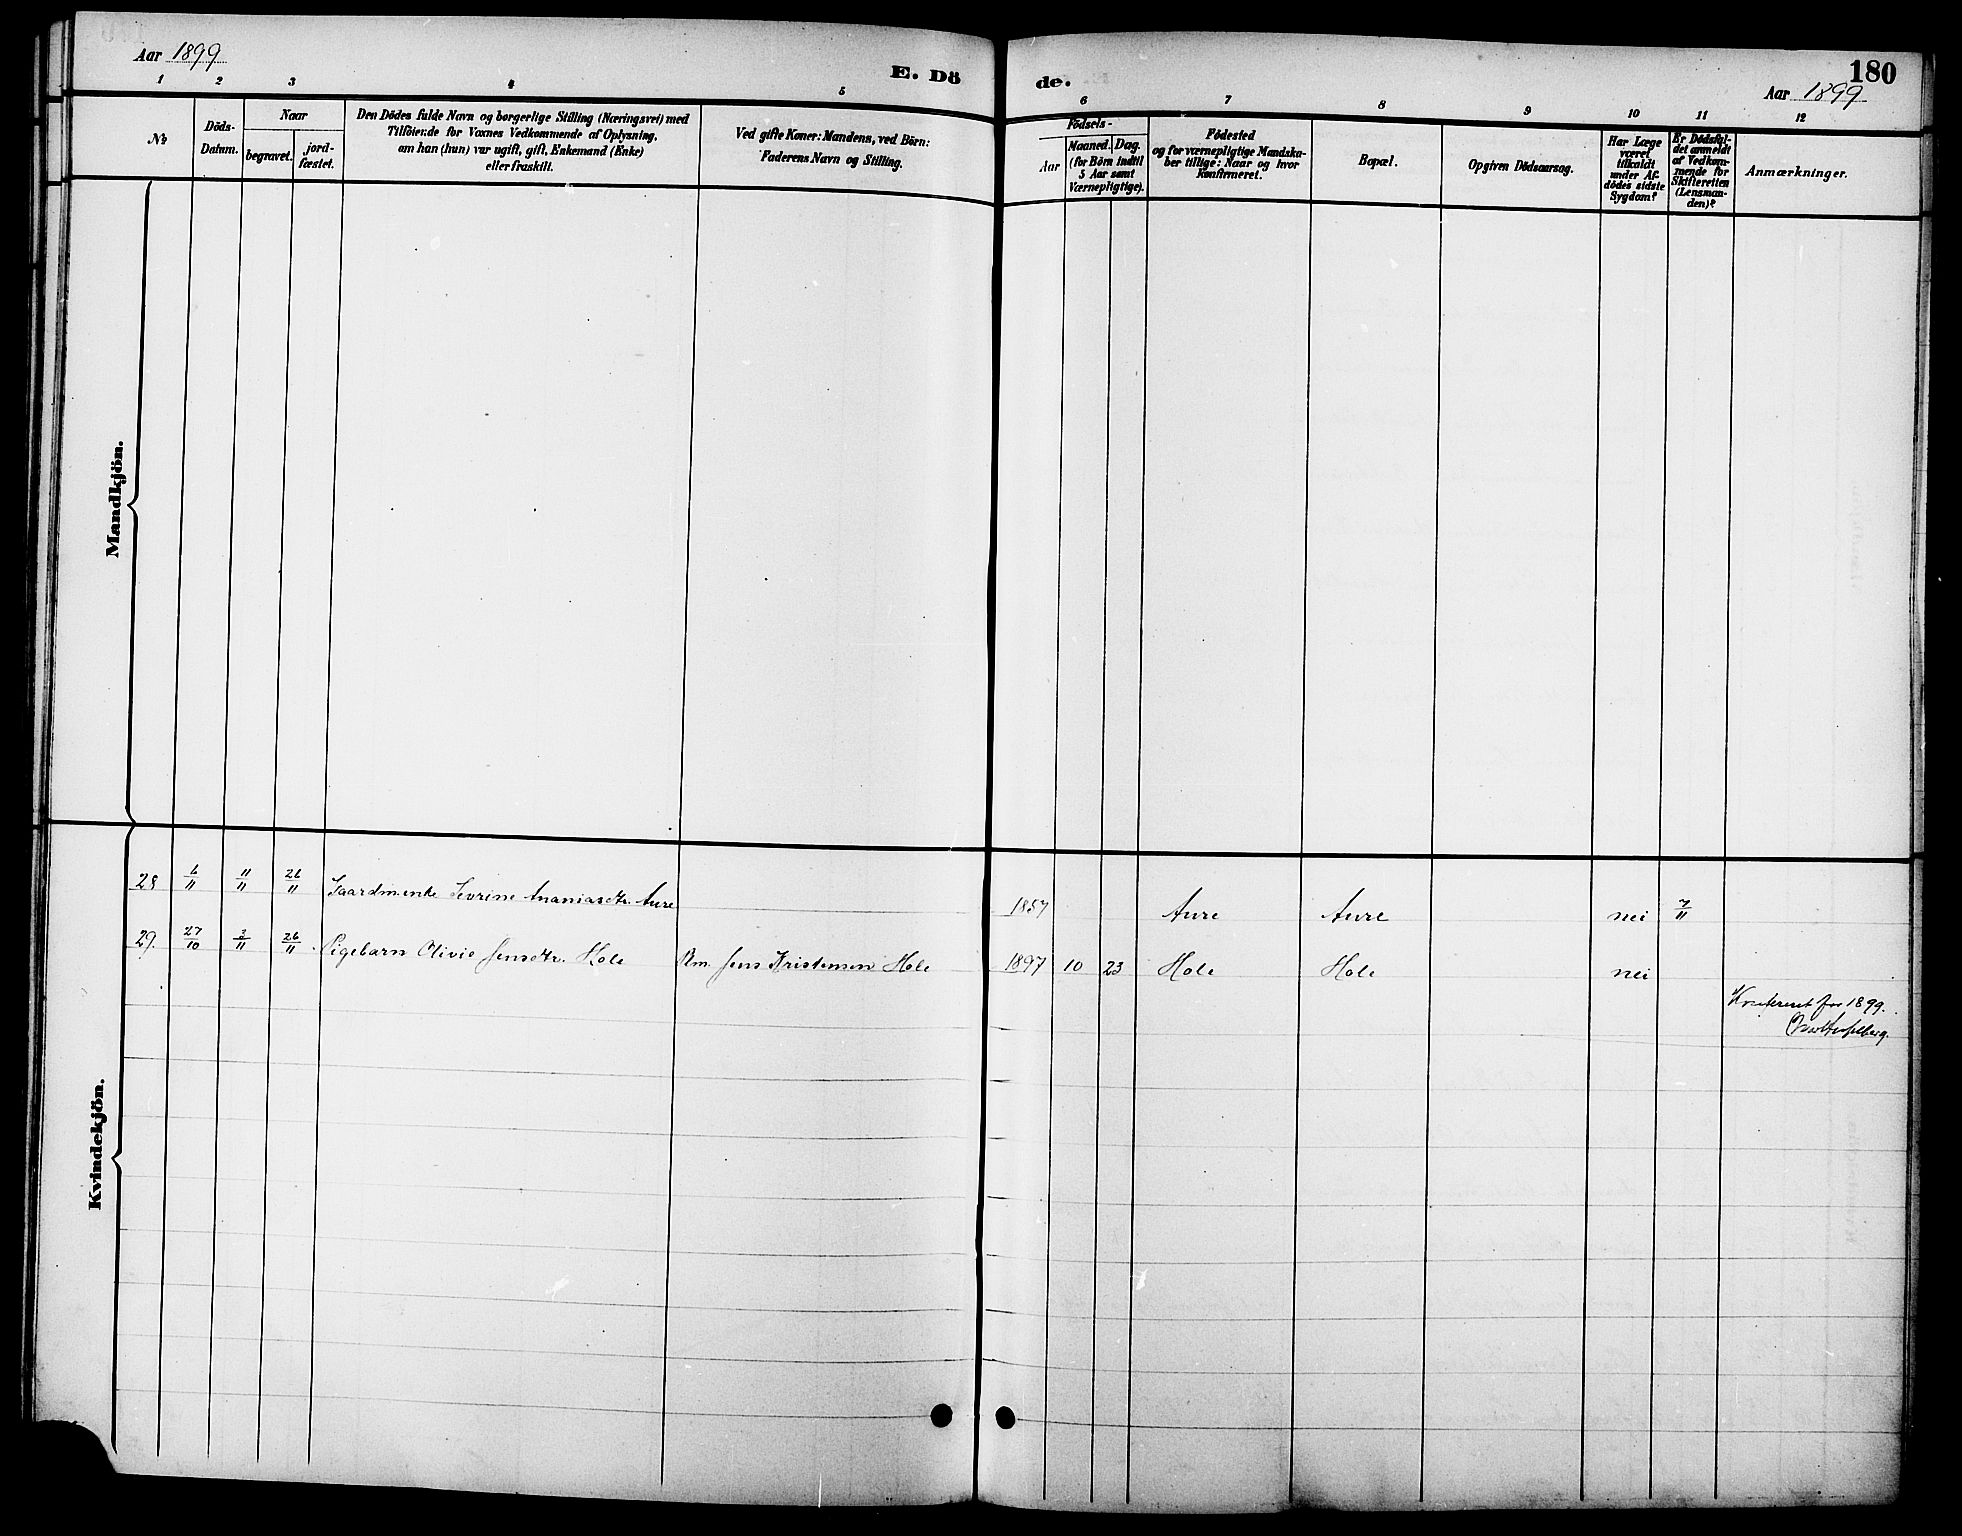 Aar 1899
E. Dö
de.
180
Aar 1899
1 2 3 4 5 6 7 8 9 10 11 12
No
Döds-
Datum.
Naar
begravet.
jord-
fæstet.
Den Dödes fulde Navn og borgerlige Stilling (Næringsvei) med
Tilföiende for Voxnes Vedkommende af Oplysning,
om han (hun) var ugift, gift, Enkemand (Enke)
eller fraskilt.
Ved gifte Koner: Mandens, ved Börn:
Faderens Navn og Stilling.
Födsels-
Aar
Maaned. Dag.
(for Börn indtil
5 Aar samt
Værnepligtige).
Födested
og for værnepligtige Mandska-
ber tillige: Naar og hvor
Konfirmeret.
Bopæl.
Opgiven Dödsaarsag.
Har Læge
været
tilkaldt
under Af-
dödes sidste
Sygdom?
Er Dödsfal-
det anmeldt
af Vedkom-
mende for
Skifteretten
(Lensman-
den)?
Anmærkninger.
Mandkjön.
Kvindekjön.
28 6/11 11/11 26/11 Gaardm.enke Sevrine Ananiasdtr. Aure 1857 Aure Aure nei 7/11
29. 27/10 3/11 26/11 Pigebarn Olivie Jensdtr. Hole Bm. Jens Kristensen Hole 1897 10 23 Hole Hole nei
for 1899.